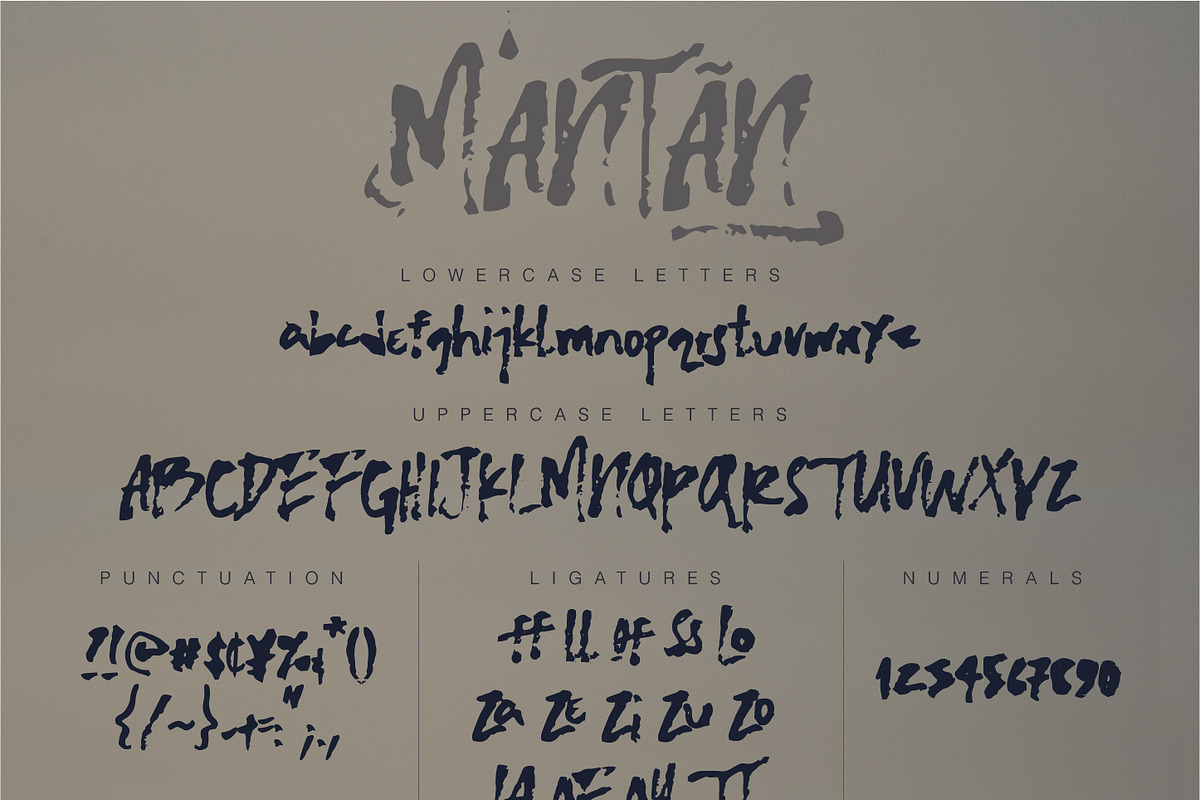 MAnTÃn
LOWERCASE LETTERS
abcdefghijklmnopqrstuvwxyz
UPPERCASE LETTERS
ABCDEFGHIJKLMNOPQRSTUVWXYZ
PUNCTUATION
LIGATURES
NUMERALS
?!@#$¢¥%&*()
{/~}-+=:";.,
ff ll of ss lo
za ze zi zu zo
1234567890